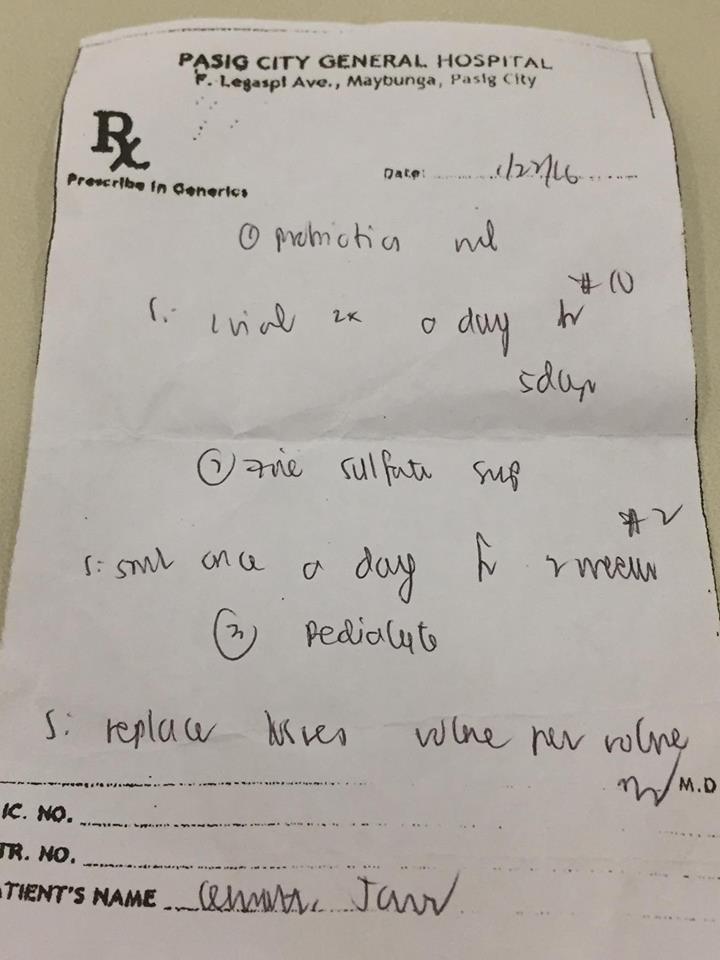 PASIG CITY GENERAL HOSPITAL
F. Legaspi Ave., Maybunga, Pasig City
Rx
Prescribe in Generics
Date: 1/27/16
① probiotics
#10
S: 1 vial 2x a day for
5 days
② zinc sulfate syrup
#2
S: 5ml once a day for 2 weeks
③ pedialyte
S: replace losses volume per volume
M.D
IC. NO.
TR. NO.
ATIENT'S NAME